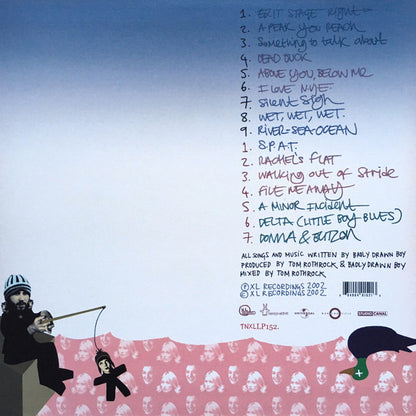 1. EXIT STAGE RIGHT
2. A PEAK YOU REACH
3. SOMETHING TO TALK ABOUT
4. DEAD DUCK
5. ABOVE YOU, BELOW ME
6. I LOVE NYE
7. SILENT SIGH
8. WET, WET, WET.
9. RIVER-SEA-OCEAN
1. S.P.A.T.
2. RACHEL'S FLAT
3. WALKING OUT OF STRIDE
4. FILE ME AWAY
5. A MINOR INCIDENT
6. DELTA (LITTLE BOY BLUES)
7. DONNA & BLITZEN
ALL SONGS AND MUSIC WRITTEN BY BADLY DRAWN BOY
PRODUCED BY TOM ROTHROCK & BADLY DRAWN BOY
MIXED BY TOM ROTHROCK
Ⓟ XL RECORDINGS 2002
© XL RECORDINGS 2002
UNIVERSAL
STUDIOCANAL
TNXLLP152.